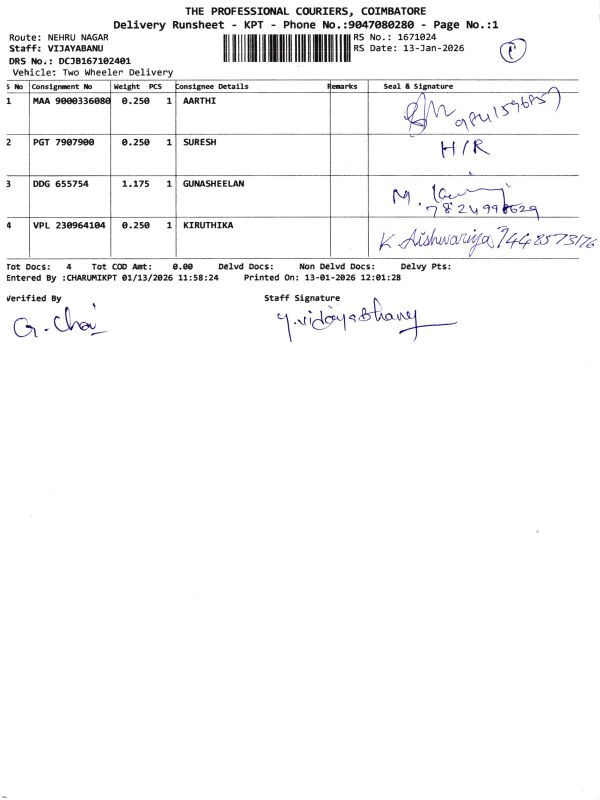 THE PROFESSIONAL COURIERS, COIMBATORE
Delivery Runsheet - KPT - Phone No.:9047080280 - Page No.:1
Route: NEHRU NAGAR RS No.: 1671024
Staff: VIJAYABANU RS Date: 13-Jan-2026
DRS No.: DCJB167102401
Vehicle: Two Wheeler Delivery
S No Consignment No Weight PCS Consignee Details Remarks Seal & Signature
1 MAA 9000336080 0.250 1 AARTHI
2 PGT 7907900 0.250 1 SURESH H/R
3 DDG 655754 1.175 1 GUNASHEELAN M.
4 VPL 230964104 0.250 1 KIRUTHIKA K Aishwariya 7448573176
Tot Docs: 4 Tot COD Amt: 0.00 Delvd Docs: Non Delvd Docs: Delvy Pts:
Entered By :CHARUMIKPT 01/13/2026 11:58:24 Printed On: 13-01-2026 12:01:28
Verified By Staff Signature
G. Chai